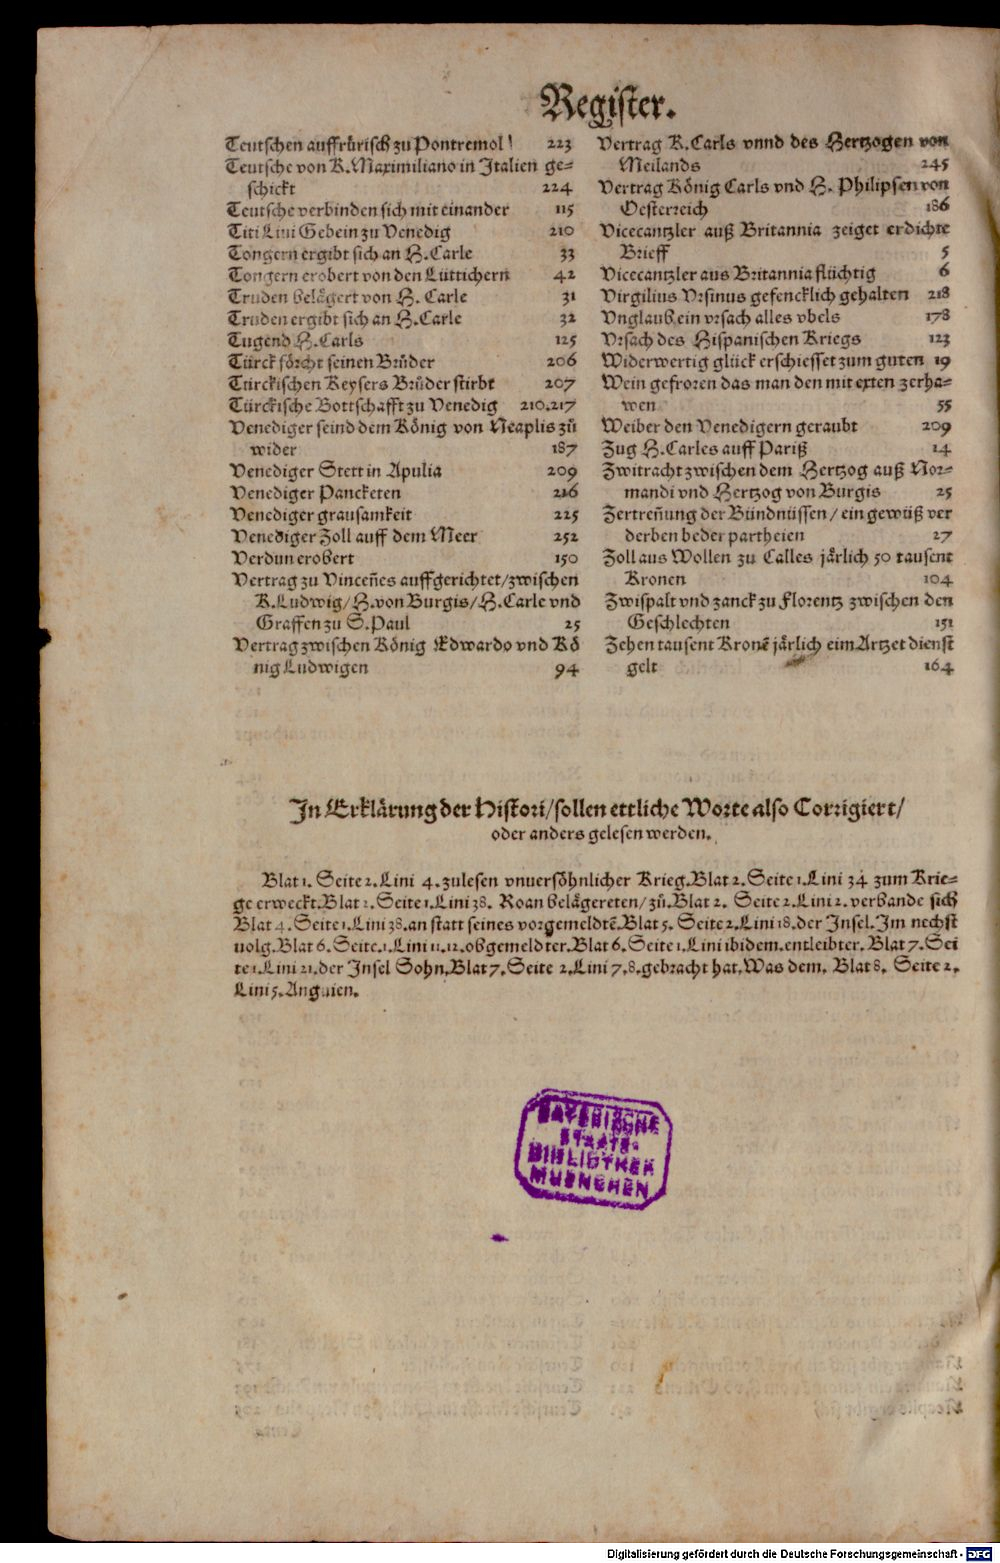 Register.
Teutschen auffrürisch zu Pontremol 223
Teutsche von K. Maximiliano in Italien ge-
schickt 224
Teutsche verbinden sich mit einander 115
Titi Liui Gebein zu Venedig 210
Tongern ergibt sich an H. Carle 33
Tongern erobert von den Lüttichern 42
Truden belägert von H. Carle 31
Truden ergibt sich an H. Carle 32
Tugend H. Carls 125
Türck förcht seinen Brüder 206
Türckischen Keysers Brüder stirbt 207
Türckische Bottschafft zu Venedig 210.217
Venediger seind dem König von Neaplis zů
wider 187
Venediger Stett in Apulia 209
Venediger Pancketen 216
Venediger grausamkeit 225
Venediger Zoll auff dem Meer 252
Verdun erobert 150
Vertrag zu Vinceñes auffgerichtet/zwischen
K. Ludwig/H. von Burgis/H. Carle vnd
Graffen zu S. Paul 25
Vertrag zwischen König Edwardo vnd Kö
nig Ludwigen 94
Vertrag K. Carls vnnd des Hertzogen von
Meilands 245
Vertrag König Carls vnd H. Philipsen von
Oesterreich 186
Vicecantzler auß Britannia zeiget erdichte
Brieff 5
Vicecantzler aus Britannia flüchtig 6
Virgilius Vrsinus gefencklich gehalten 218
Vnglaub ein vrsach alles vbels 178
Vrsach des Hispanischen Kriegs 123
Widerwertig glück erschiesset zum guten 19
Wein gefroren das man den mit exten zerha-
wen 55
Weiber den Venedigern geraubt 209
Zug H. Carles auff Pariß 14
Zwitracht zwischen dem Hertzog auß Nor-
mandi vnd Hertzog von Burgis 25
Zertreñung der Bündnüssen / ein gewüß ver
derben beder partheien 27
Zoll aus Wollen zu Calles järlich 50 tausent
Kronen 104
Zwispalt vnd zanck zu Florentz zwischen den
Geschlechten 151
Zehen tausent Kronē järlich eim Artzet dienst
gelt 164
In Erklärung der Histori/sollen ettliche Worte also Corrigiert/
oder anders gelesen werden.
Blat 1. Seite 2. Lini 4. zulesen vnuersöhnlicher Krieg. Blat 2. Seite 1. Lini 34 zum Krie-
ge erweckt. Blat 2. Seite 1. Lini 38. Roan belägereten/zů. Blat 2. Seite 2. Lini 2. verbande sich
Blat 4. Seite 1. Lini 38. an statt seines vorgemeldtē. Blat 5. Seite 2. Lini 18. der Insel. Im nechst
uolg. Blat 6. Seite. 1. Lini 11.12. obgemeldter. Blat 6. Seite 1. Lini ibidem. entleibter. Blat 7. Sei
te 1. Lini 21. der Insel Sohn. Blat 7. Seite 2. Lini 7.8. gebracht hat. Was dem. Blat 8. Seite 2.
Lini 5. Anguien.
BAYERISCHE
STAATS-
BIBLIOTHEK
MUENCHEN
Digitalisierung gefördert durch die Deutsche Forschungsgemeinschaft - DFG